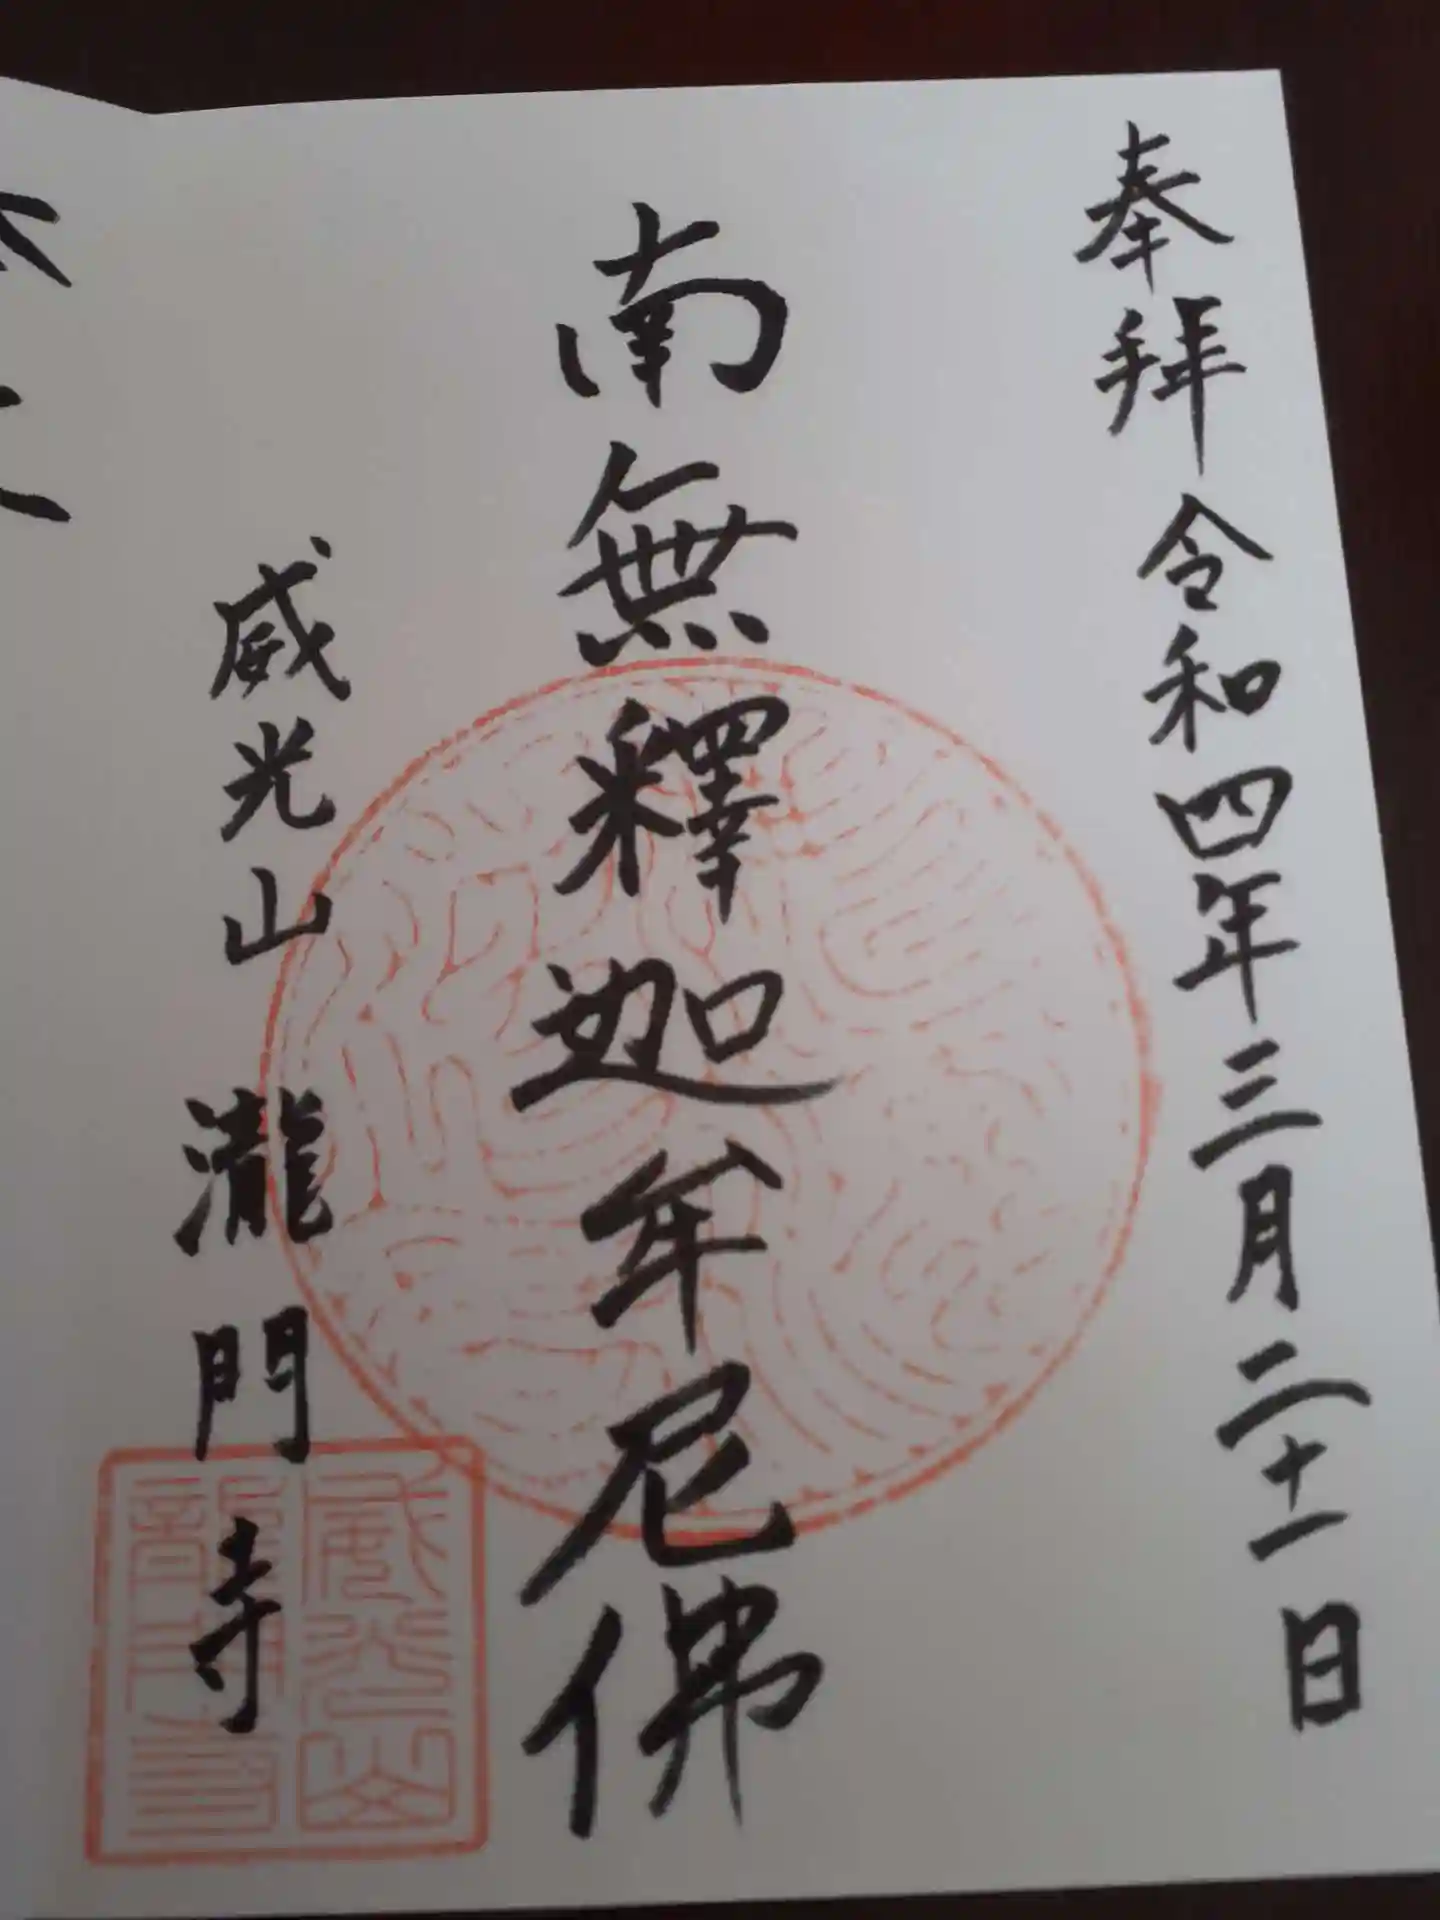 奉拝 令和四年三月二十一日
南無釋迦牟尼佛
威光山 瀧門寺
威光山